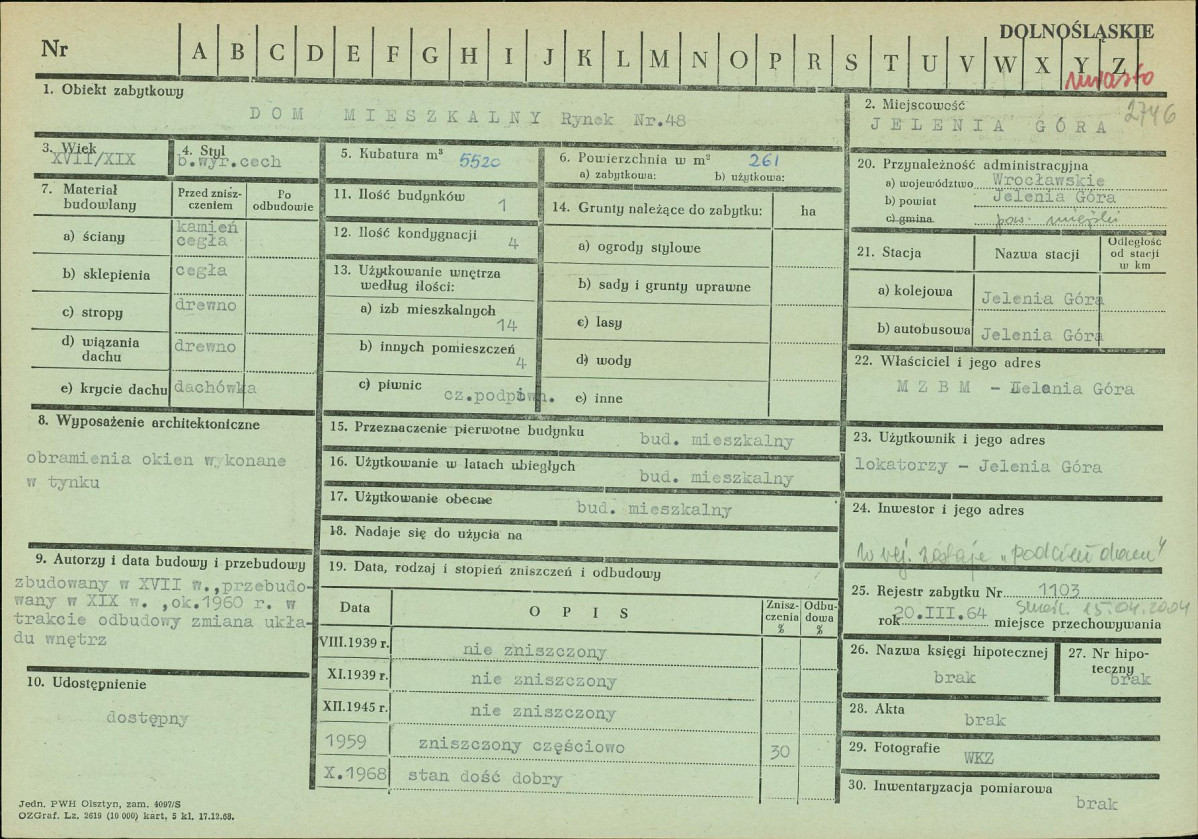 DOLNOŚLĄSKIE
Nr A B C D E F G H I J K L M N O P R S T U V W X Y Z
miasto
1. Obiekt zabytkowy
DOM MIESZKALNY Rynek Nr.48
2. Miejscowość
2746
JELENIA GÓRA
3. Wiek
XVII/XIX
4. Styl
b.wyr.cech
5. Kubatura m³ 5520
6. Powierzchnia w m² 261
a) zabytkowa: b) użytkowa:
7. Materiał budowlany
Przed zniszczeniem
Po odbudowie
a) ściany
kamień
cegła
b) sklepienia cegła
c) stropy drewno
d) wiązania dachu drewno
e) krycie dachu dachówka
8. Wyposażenie architektoniczne
obramienia okien wykonane
w tynku
9. Autorzy i data budowy i przebudowy
zbudowany w XVII w.,przebudo-
wany w XIX w. ,ok.1960 r. w
trakcie odbudowy zmiana ukła-
du wnętrz
10. Udostępnienie
dostępny
11. Ilość budynków 1
12. Ilość kondygnacji 4
13. Użytkowanie wnętrza
według ilości:
a) izb mieszkalnych
14
b) innych pomieszczeń
4
c) piwnic
cz.podpiwn.
14. Grunty należące do zabytku: ha
a) ogrody stylowe
b) sady i grunty uprawne
c) lasy
d) wody
e) inne
15. Przeznaczenie pierwotne budynku bud. mieszkalny
16. Użytkowanie w latach ubiegłych bud. mieszkalny
17. Użytkowanie obecne bud. mieszkalny
18. Nadaje się do użycia na
19. Data, rodzaj i stopień zniszczeń i odbudowy
Data OPIS Zniszczenia % Odbudowa %
VIII.1939 r. nie zniszczony
XI.1939 r. nie zniszczony
XII.1945 r. nie zniszczony
1959 zniszczony częściowo 30
X.1968 stan dość dobry
20. Przynależność administracyjna
a) województwo Wrocławskie
b) powiat Jelenia Góra
c) gmina pow. miejski
21. Stacja Nazwa stacji Odległość od stacji w km
a) kolejowa Jelenia Góra
b) autobusowa Jelenia Góra
22. Właściciel i jego adres
MZBM - Jelenia Góra
23. Użytkownik i jego adres
lokatorzy - Jelenia Góra
24. Inwestor i jego adres
w rej. zostaje "podcień dom"
25. Rejestr zabytku Nr 1103
rok 20.III.64 miejsce przechowywania
15.04.2004
26. Nazwa księgi hipotecznej
brak
27. Nr hipoteczny
brak
28. Akta
brak
29. Fotografie
WKZ
30. Inwentaryzacja pomiarowa
brak
Jedn. PWH Olsztyn, zam. 4097/S
OZGraf. Lz. 2619 (10 000) kart, 5 kl. 17.12.68.